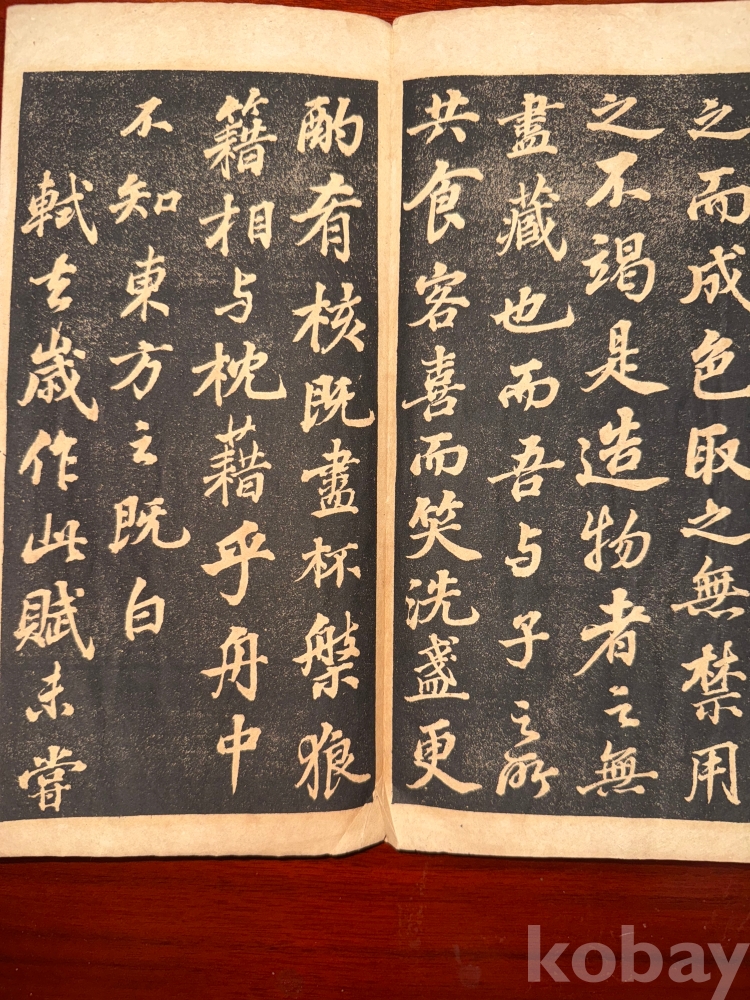 之而成色取之無禁用
之不竭是造物者之無
盡藏也而吾与子之所
共食客喜而笑洗盞更
酌肴核既盡杯槃狼
籍相与枕藉乎舟中
不知東方之既白
軾去歲作此賦未嘗
kobay